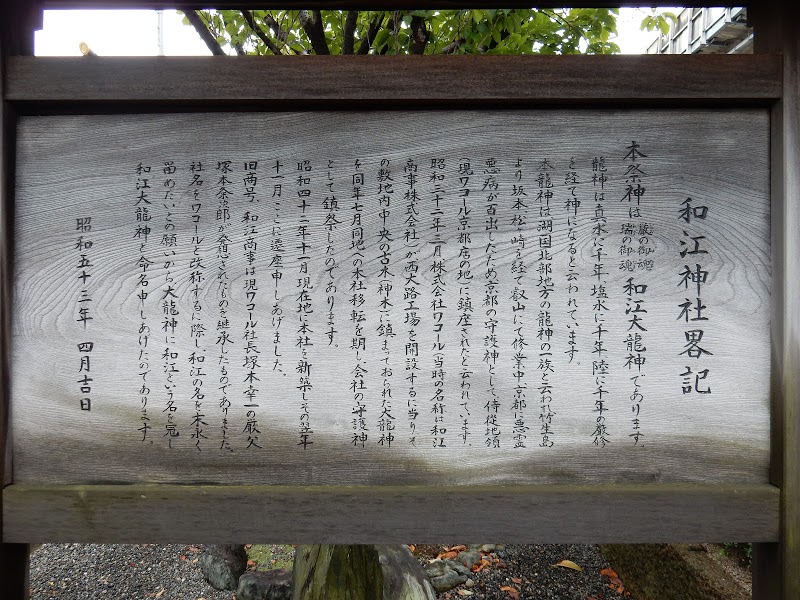 和江神社畧記
本祭神は 厳の御魂 瑞の御魂 和江大龍神であります。
龍神は真水に千年 塩水に千年 陸に千年の厳修
を経て神になると云われています。
本龍神は湖国北部地方の龍神の一族と云われ竹生島
より坂本松ヶ崎を経て叡山にて修業中京都に悪霊
悪病が百出したため京都の守護神として侍従地領
(現ワコール京都店の地)に鎮座されたと云われています。
昭和三十二年二月株式会社ワコール(当時の名称は和江
商事株式会社)が西大路工場を開設するに当りそ
の敷地内中央の古木(神木)に鎮まっておられた大龍神
を同年七月同地への本社移転を期し会社の守護神
として鎮祭したのであります。
昭和四十二年十一月現在地に本社を新築しその翌年
十一月ここに遷座申しあげました。
旧商号、和江商事は現ワコール社長塚本幸一の厳父
塚本粂次郎が発想されたものを継承したものでありました。
社名をワコールと改称するに際し、和江の名を末永く
留めたいとの願いから大龍神に和江という名を冠し
和江大龍神と命名申しあげたのであります。
昭和五十三年 四月吉日